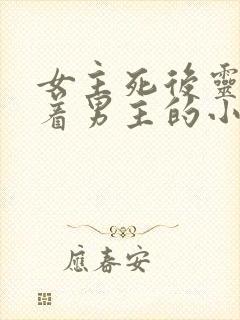 女主死後靈
着男主的小
應春安